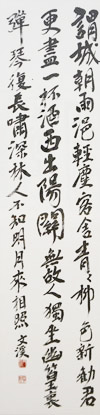 渭城朝雨浥輕塵客舍青々柳色新勸君
更盡一杯酒西出陽關無故人獨坐幽篁裏
彈琴復長嘯深林人不知明月來相照 文溪